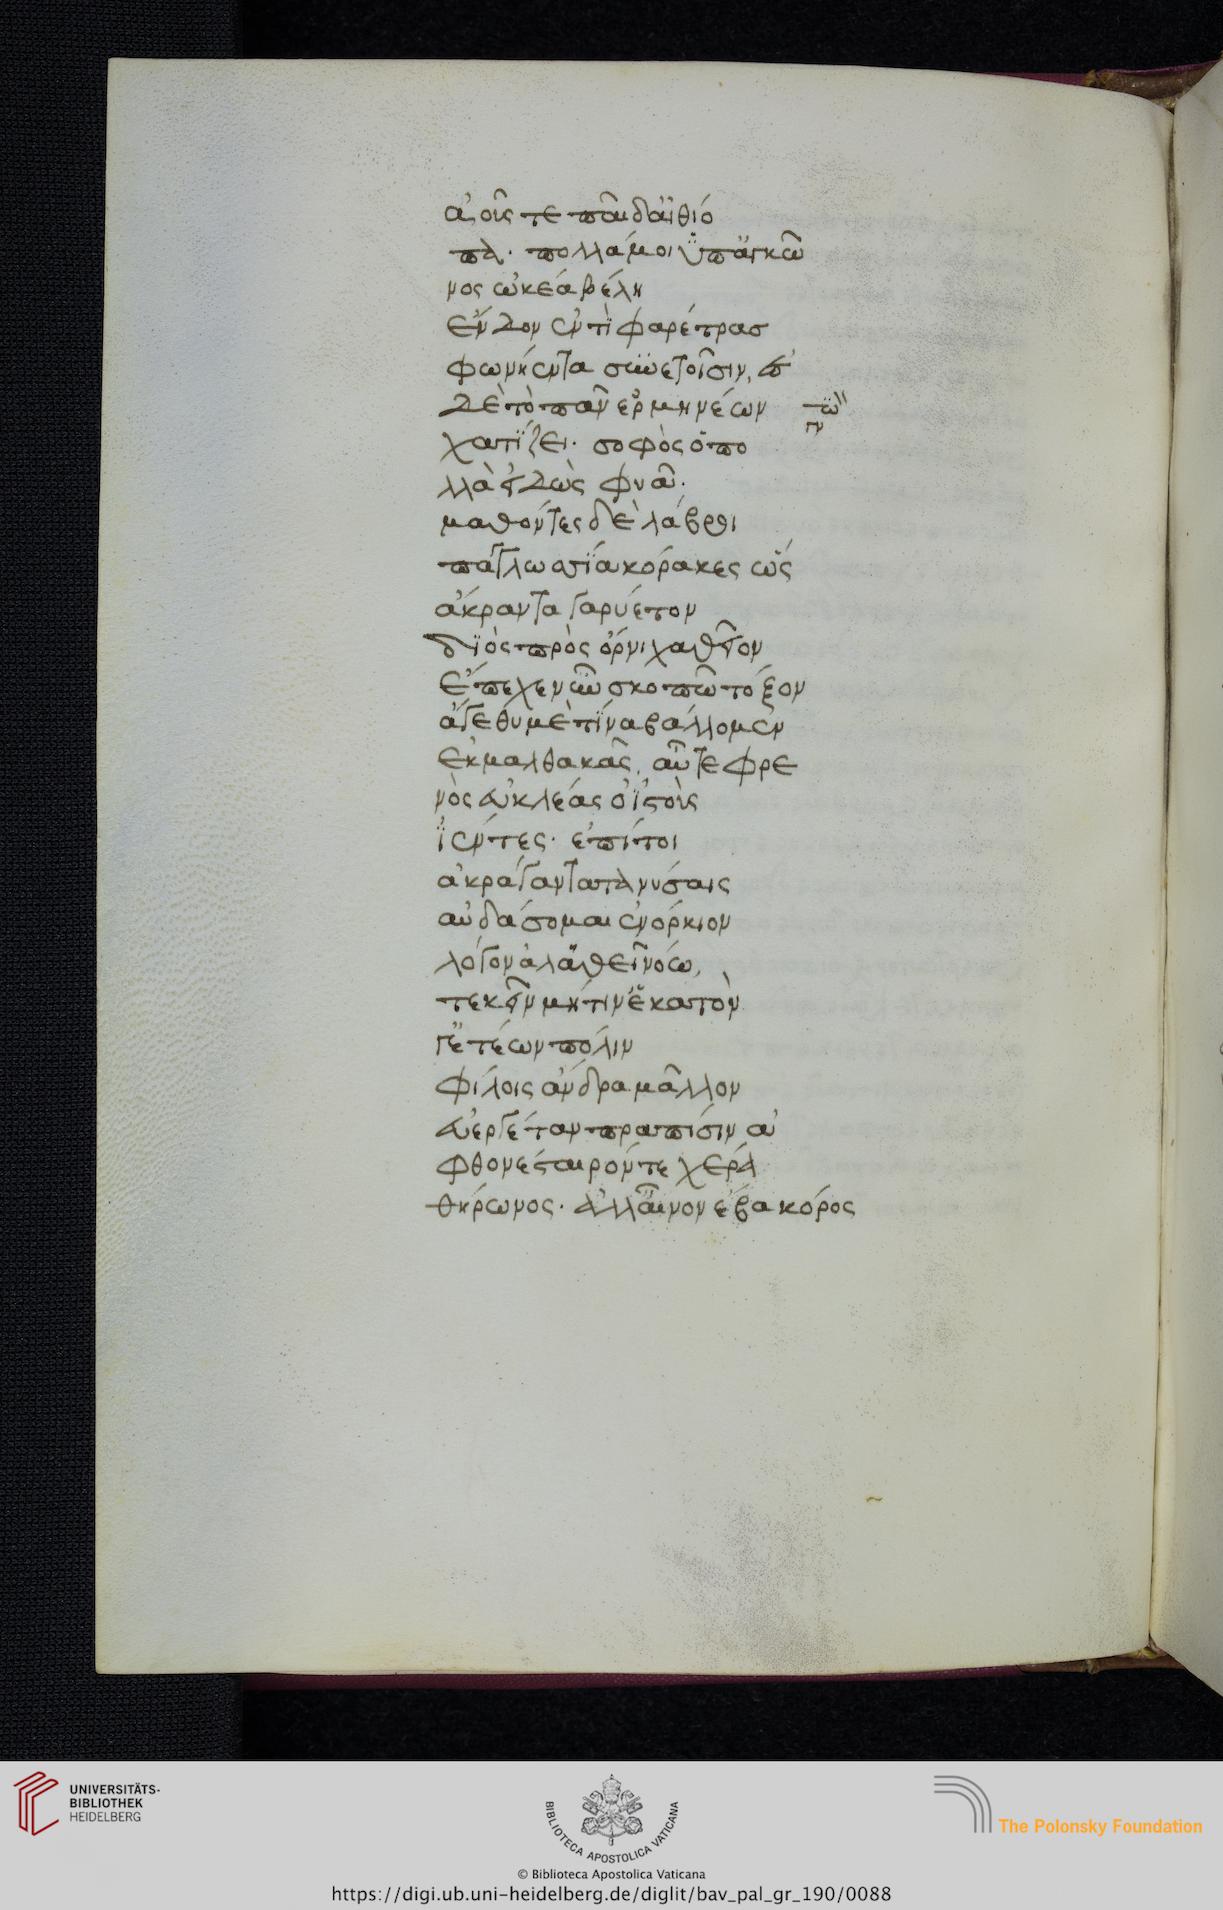 ἀοῖς τε παῖδ' αἰθιό
πα. πολλά μοι ὑπ' ἀγκῶ
νος ὠκέα βέλη
ἔνδον ἐντὶ φαρέτρας
φωνήεντα συνετοῖσιν, ἐσ
δὲ τὸ πᾶν ἑρμηνέων
χατίζει. σοφὸς ὁ πο
λλὰ εἰδὼς φυᾷ.
μαθόντες δὲ λάβροι
παγλωσίᾳ κόρακες ὥς
ἄκραντα γαρύετον
διὸς πρὸς ὄρνιχα θεῖον
ἔπεχε νῦν σκοπῶ τόξον
ἄγε θυμὲ τίνα βάλλομεν
ἐκ μαλθακᾶς αὖτε φρε
νὸς εὐκλέας ὀϊστοὺς
ἱέντες. ἐπί τοι
ἀκράγαντα τανύσαις
αὐδάσομαι ἐνόρκιον
λόγον ἀλαθεῖ νόω,
τεκεῖν μή τιν' ἑκατόν
γε ἐτέων πόλιν
φίλοις ἄνδρα μᾶλλον
εὐεργέταν πραπίσιν ἀ
φθονέστερόν τε χέρα
θήρωνος. ἀλλ' αἶνον ἔβα κόρος
UNIVERSITÄTS-
BIBLIOTHEK
HEIDELBERG
BIBLIOTECA APOSTOLICA VATICANA
The Polonsky Foundation
© Biblioteca Apostolica Vaticana
https://digi.ub.uni-heidelberg.de/diglit/bav_pal_gr_190/0088